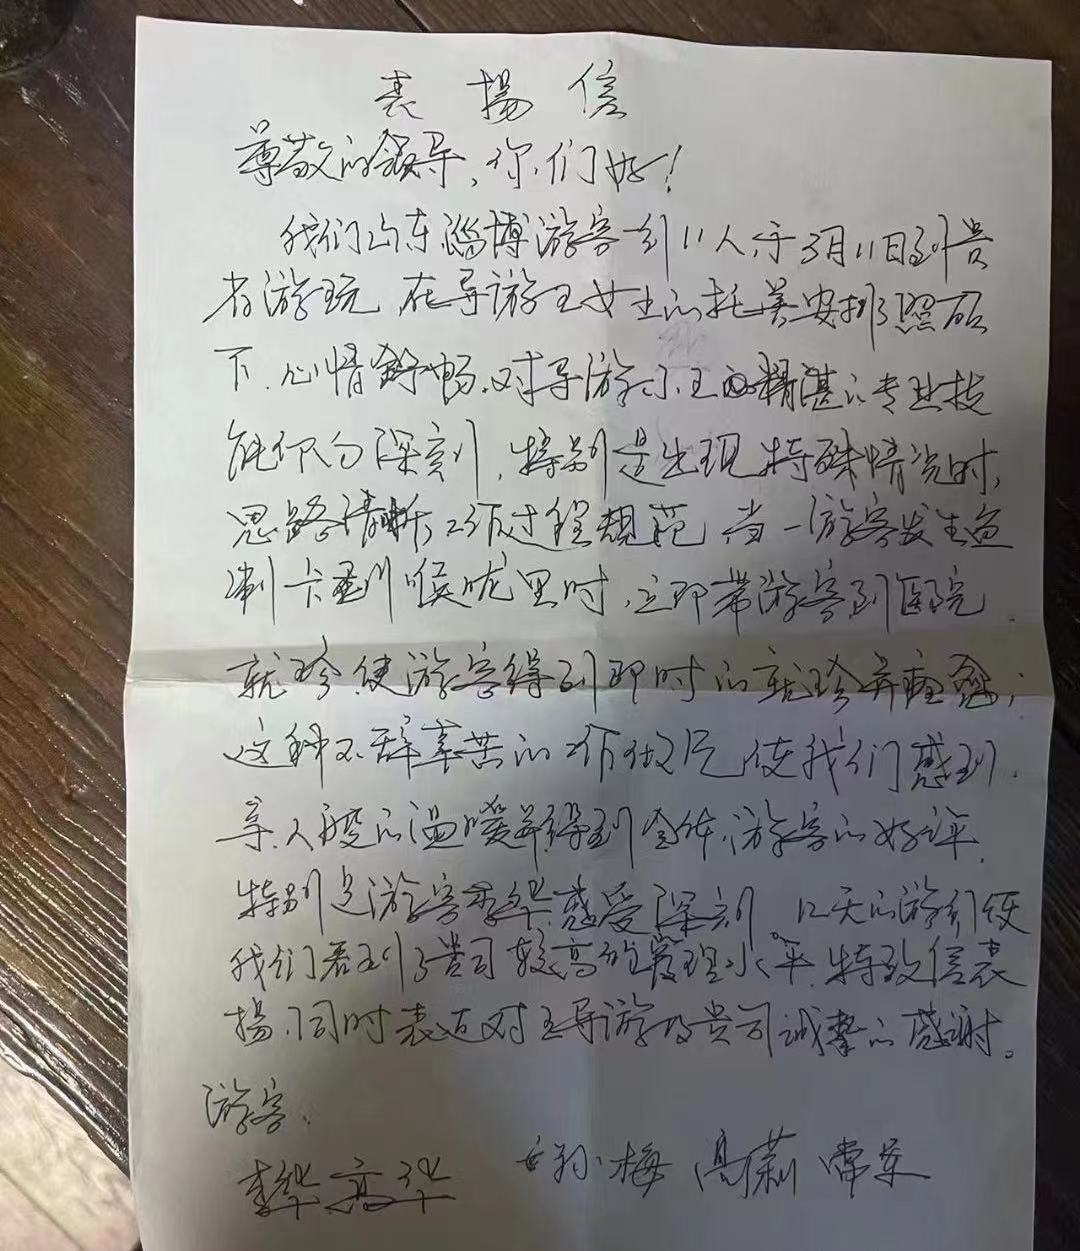 表揚信
尊敬的领导，你们好！
我们山东淄博游客一行11人，于3月11日到贵
省游玩，在导游王女士的托美安排照顾
下，心情舒畅，对导游小王的精湛的专业技
能印象深刻，特别是出现特殊情况时，
思路清晰，工作过程规范，当一游客发生鱼
刺卡到喉咙里时，立即带游客到医院
就珍，使游客得到即时的就珍并痊愈；
这种不辞辛苦的工作使我们感到
亲人般的温暖并得到全体游客的好评，
特别是游客李华感受深刻。12天的游行使
我们看到了贵司较高的管理水平，特致信表
揚，同时表达对王导游及贵司诚挚的感谢。
游客：
孙梅 高